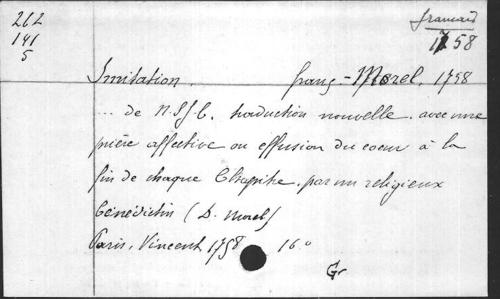 262
141
5
français
1758
Imitation. franç.-Morel, 1758
... de N.S.J.C. traduction nouvelle. avec une
prière affective ou effusion du coeur à la
fin de chaque Chapitre. par un religieux
bénédictin (D. Morel)
Paris, Vincent 1758 16.o
Gr